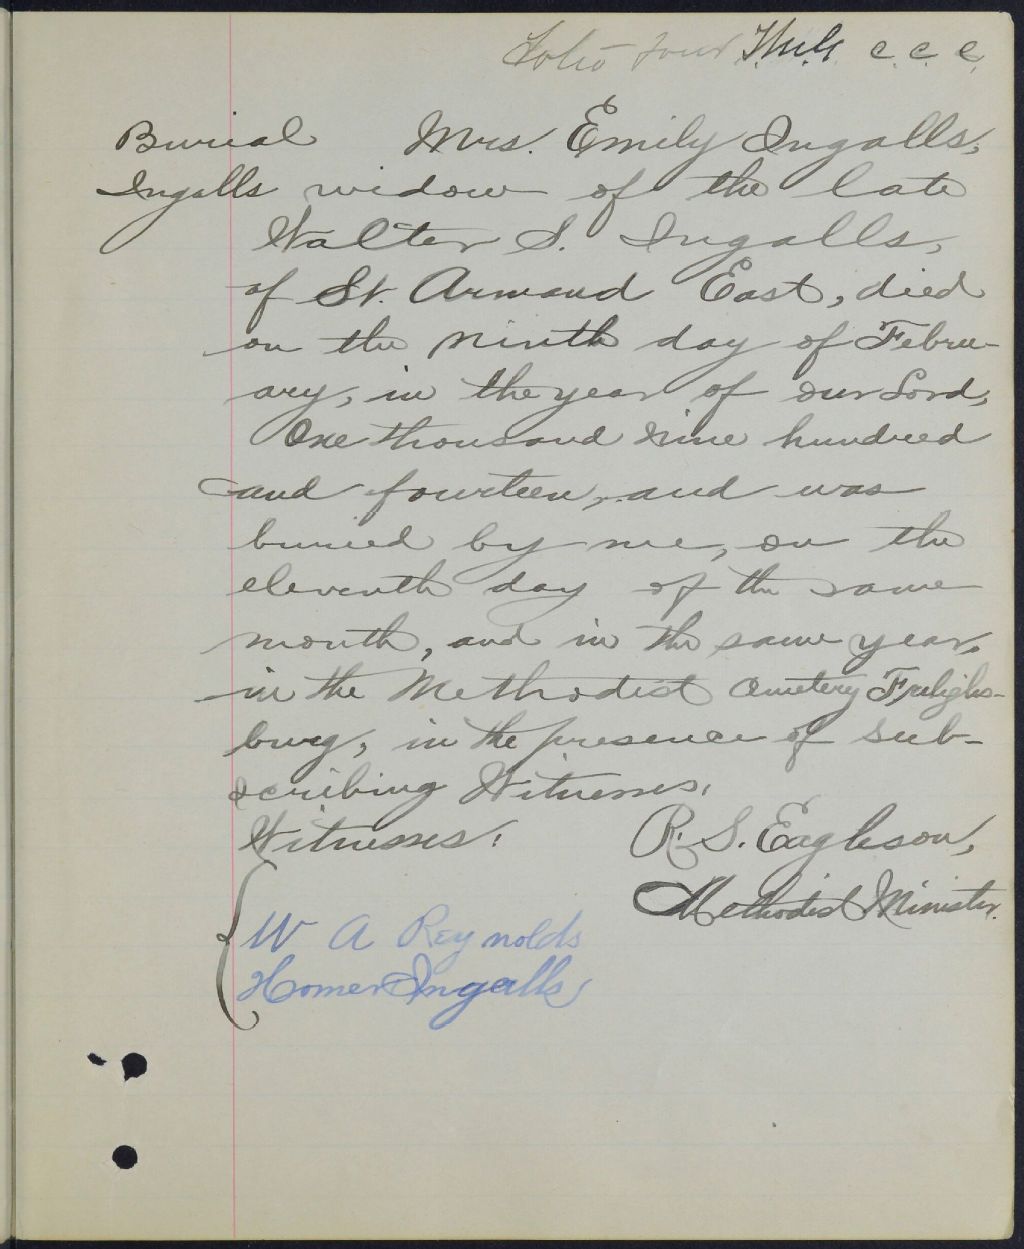 Folio four c. c. c.
Burial Mrs. Emily Ingalls,
Ingalls widow of the late
Walter S. Ingalls,
of St. Armand East, died
on the ninth day of Febru-
ary, in the year of our Lord,
One thousand nine hundred
and fourteen, and was
buried by me, on the
eleventh day of the same
month, and in the same year,
in the Methodist Cemetery Frelighs-
burg, in the presence of sub-
scribing Witnesses.
Witnesses: R. S. Eagleson,
Methodist Minister.
W A Reynolds
Homer Ingalls